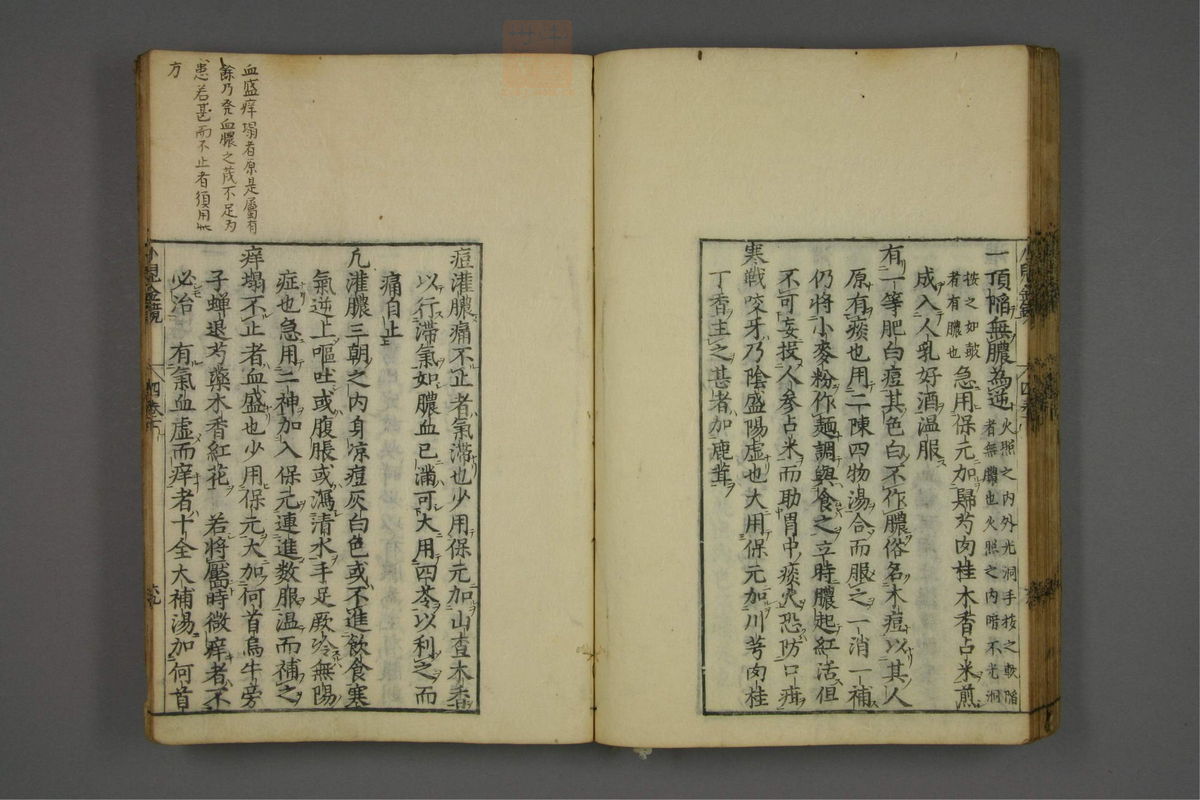 一頂陷無膿為逆
火照之内外光洞手按之軟陷
者無膿也火照之内暗不光洞
按之如皷
者有膿也
急用保元加歸芍肉桂木香占米煎
成入人乳好酒温服
有一等肥白痘其色白不作膿俗名木痘以其人
原有痰也用二陳四物湯合而服之一消一補
仍將小麥粉作麺調與食之立時膿起紅活但
不可妄投人參占米而助胃中痰火恐防口疳
寒戦咬牙乃陰盛陽虚也大用保元加川芎肉桂
丁香主之甚者加鹿茸
小兒金鏡
四卷
痘灌膿痛不止者氣滯也少用保元加山查木香
以行滯氣如膿血已滿可大用四苓以利之而
痛自止
凢灌膿三朝之内身凉痘灰白色或不進飲食寒
氣逆上嘔吐或腹脹或瀉清水手足厥冷無陽
症也急用二神加入保元連進数服温而補之
痒塌不止者血盛也少用保元大加何首烏牛旁
子蝉退芍藥木香紅花 若將靨時微痒者不
必治 有氣血虚而痒者十全大補湯加何首
小兒金鏡
四卷
血盛痒塌者原是屬有
餘乃発血膿之茂不足為
患若甚而不止者須用
方